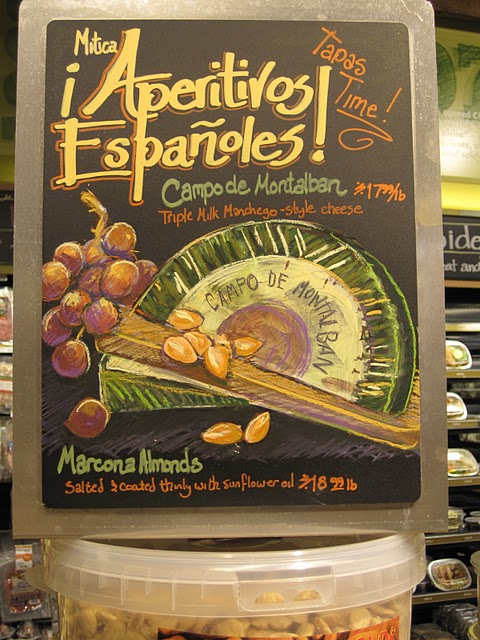 Mitica
¡Aperitivos
Españoles!
Tapas
Time!
Campo de Montalban $17.99/lb
Triple Milk Manchego-style cheese
CAMPO DE MONTALBAN
Marcona Almonds
Salted & coated thinly with sunflower oil $18.99 lb